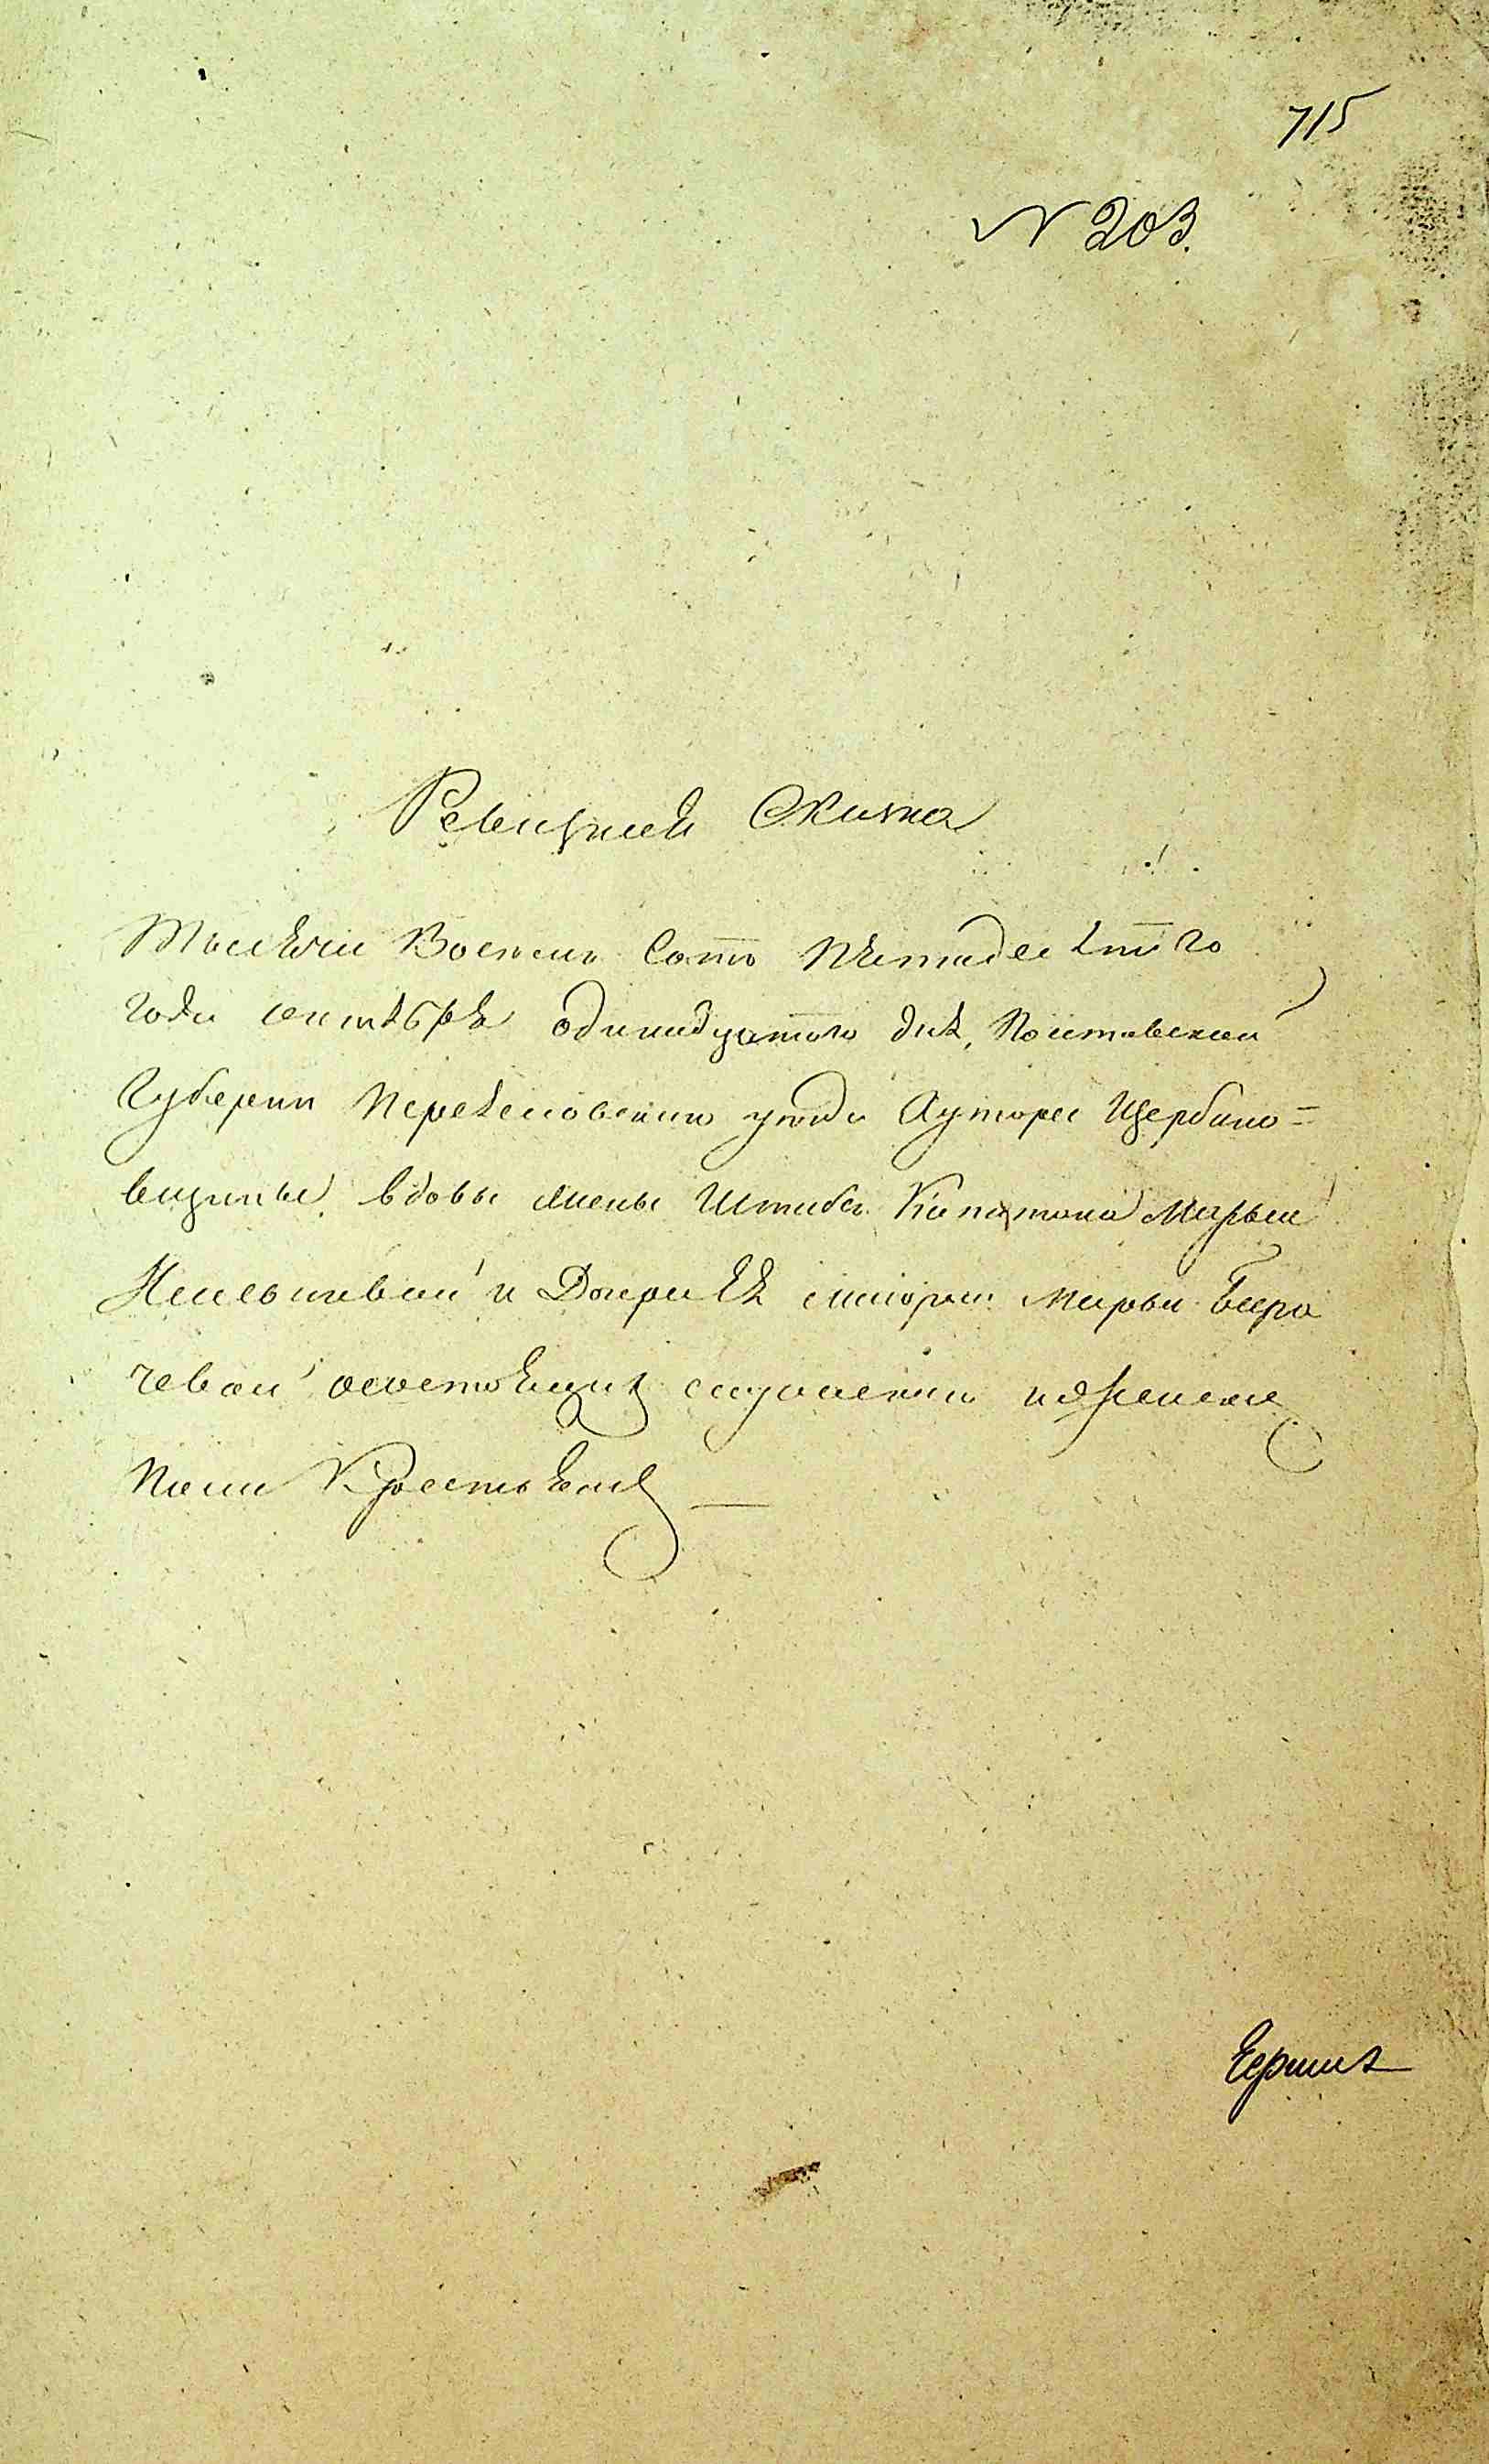 715
N 203.
Ревизская Сказка
Тысяча Восемь Сотъ Пятидесятого
года сентября одинадцатого дня, Полтавской
Губернии Переяславского уезда Хутора Щербино=
вщины вдовы жены Штабсъ Капитана Марьи
и Дочери Ея Марьи
чевой о состоящихъ мужеска и женска
пола Крестьянъ —